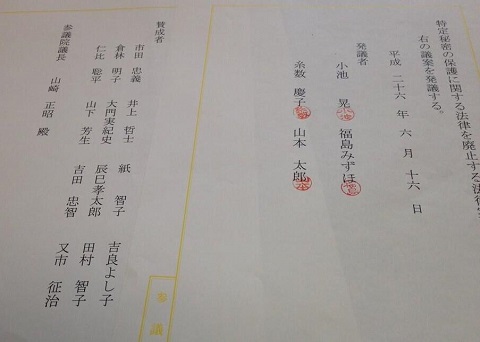 特定秘密の保護に関する法律を廃止する法律
右の議案を発議する。
平成 二十六 年 六 月 十六 日
発議者
小池 晃 福島みずほ
糸数 慶子 山本 太郎
賛成者
市田 忠義 井上 哲士 紙 智子 吉良よし子
倉林 明子 大門実紀史 辰巳孝太郎 田村 智子
仁比 聡平 山下 芳生 吉田 忠智 又市 征治
参議院議長 山崎 正昭 殿
参 議